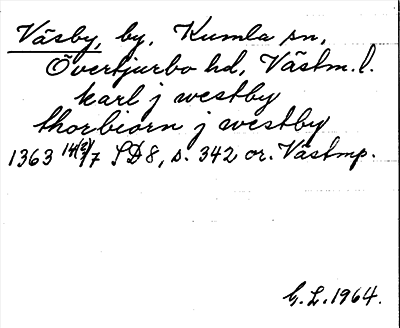 Väsby, by, Kumla sn,
Övertjurbo hd, Västm. l.
karl j westby
thorbiorn j westby
1363 14(2)/7 SD8, s. 342 or. Västmp.
G. L. 1964.